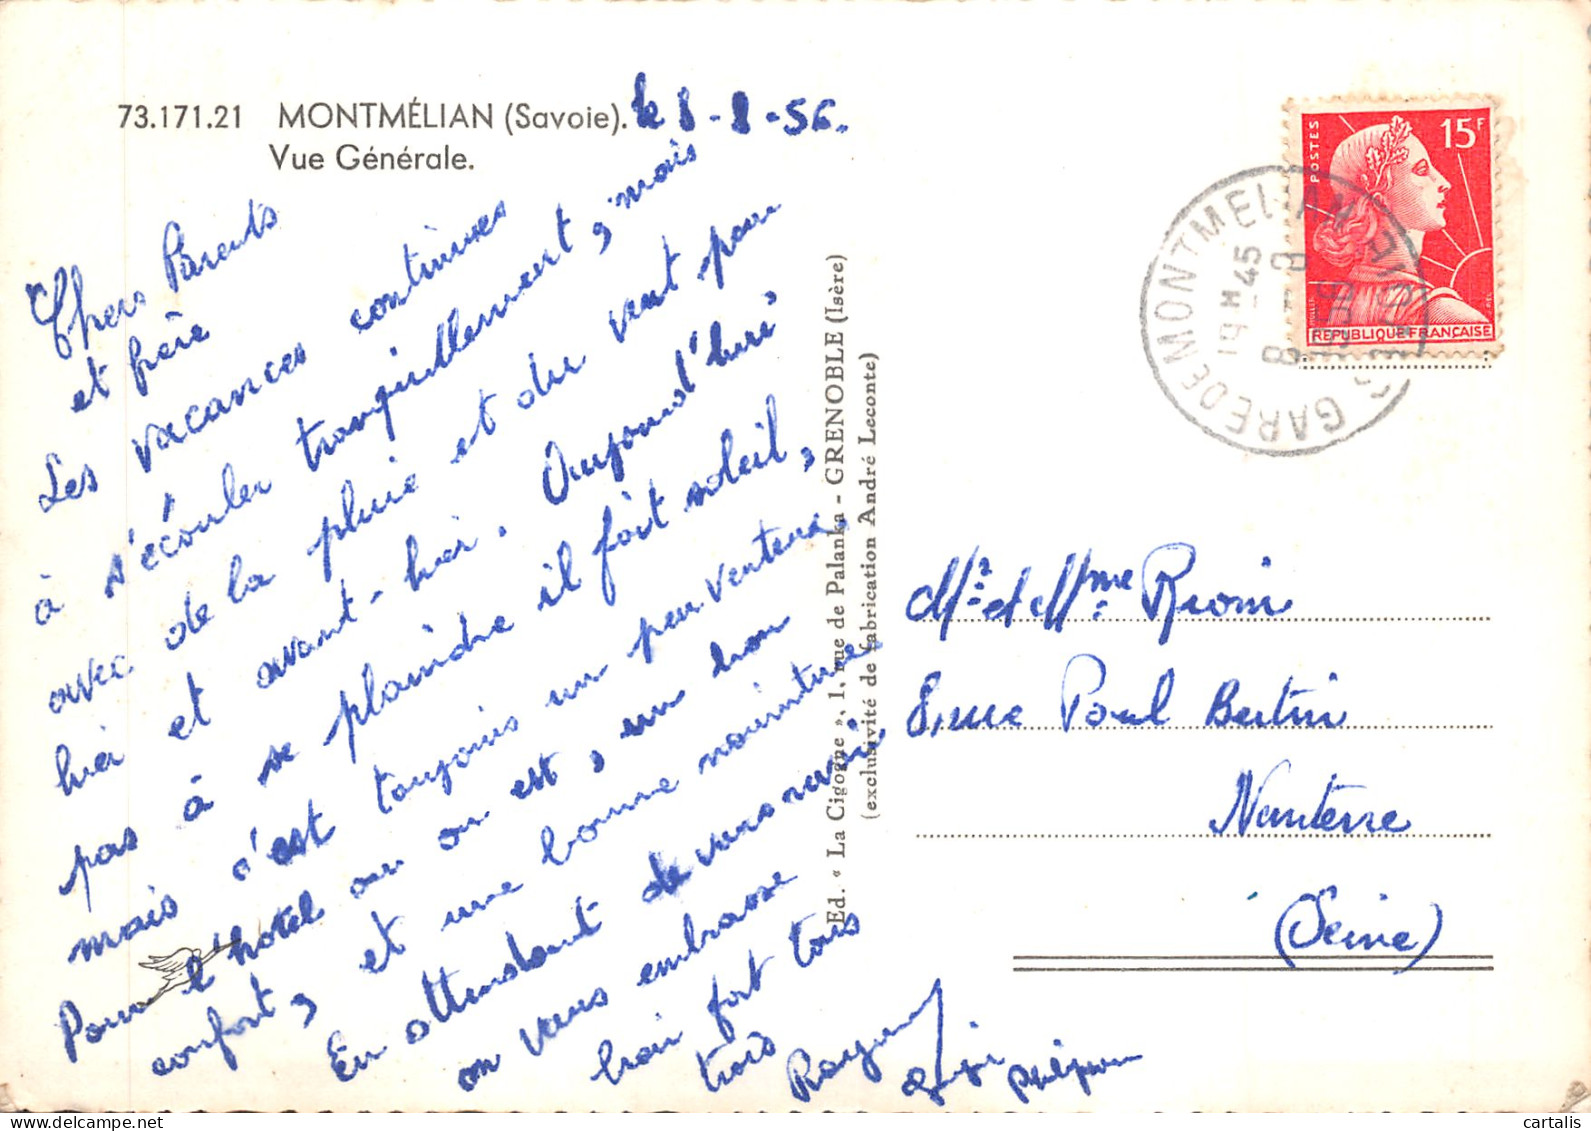 73.171.21 MONTMÉLIAN (Savoie).
Vue Générale.
le 8-8-56.
Chers Parents
et frère
Les vacances continues
à s'écouler tranquillement, mais
avec de la pluie et du vent pour
hier et avant-hier. Aujourd'hui
pas à se plaindre il fait soleil,
mais c'est toujours un peu venteux.
Pour l'hotel ou on est, un bon
confort, et une bonne nourriture.
En attendant de vous revoir
on vous embrasse
bien fort tous
trois
Raymond
Ed. « La Cigogne », 1, rue de Palanka - GRENOBLE (Isère)
(exclusivité de fabrication André Leconte)
POSTES
15F
REPUBLIQUE FRANÇAISE
GARE DE MONTMELIAN
19H45
8-8
Mr et Mme Rioni
8, rue Paul Bertin
Nanterre
(Seine)
cartalis